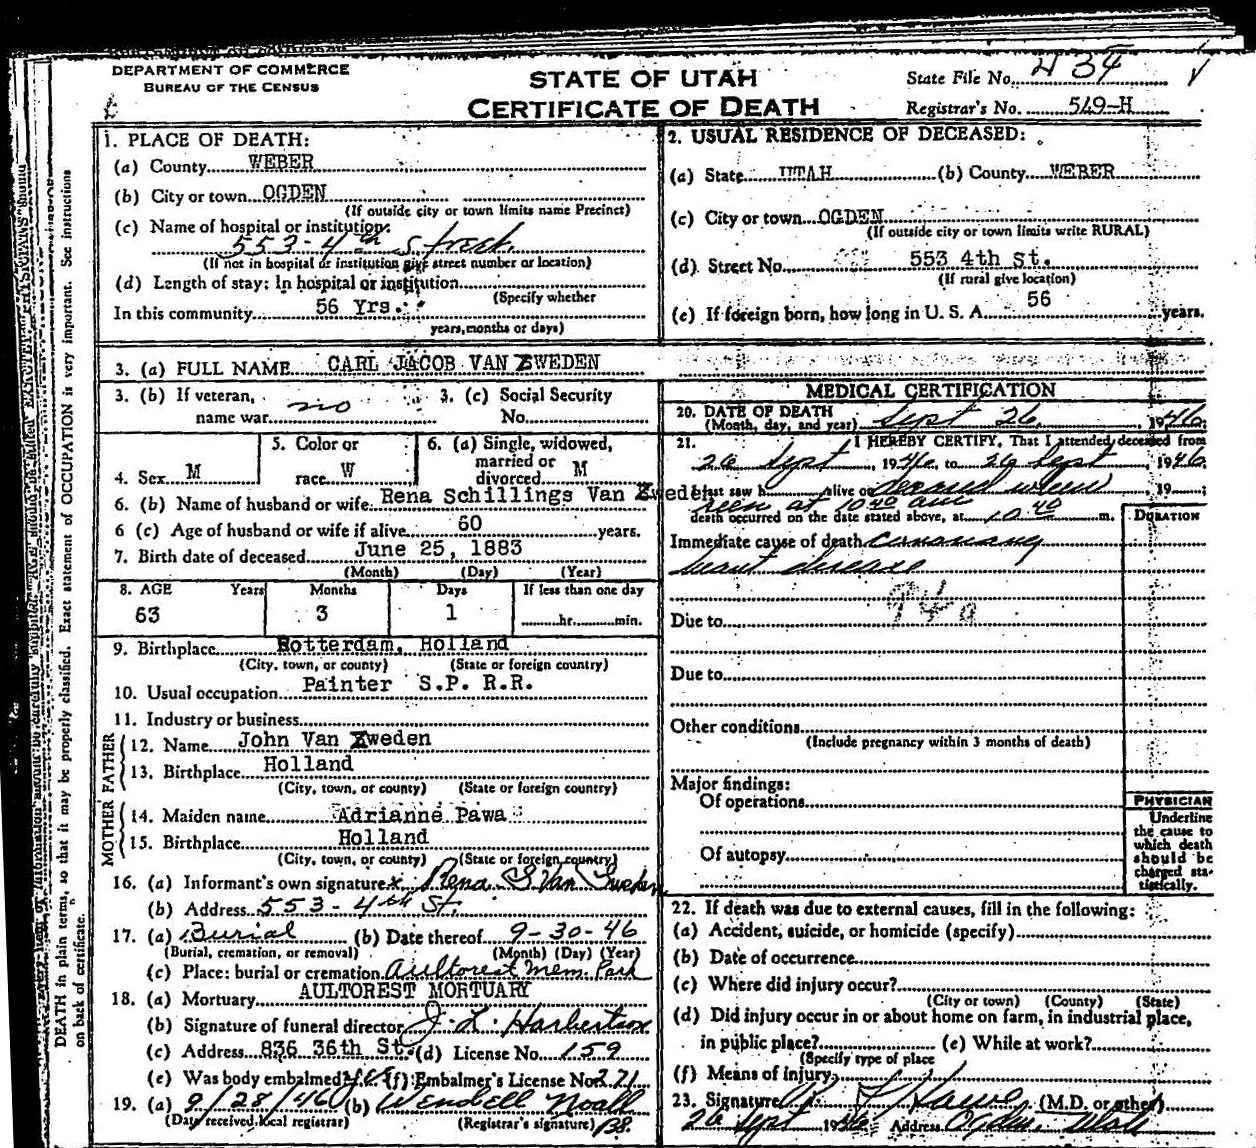 DEPARTMENT OF COMMERCE
BUREAU OF THE CENSUS
STATE OF UTAH
CERTIFICATE OF DEATH
State File No.
Registrar's No. 549-H
1. PLACE OF DEATH:
(a) County WEBER
(b) City or town OGDEN
(If outside city or town limits name Precinct)
(c) Name of hospital or institution:
553-4th Street
(If not in hospital or institution give street number or location)
(d) Length of stay: In hospital or institution
(Specify whether
In this community 56 Yrs.
years, months or days)
2. USUAL RESIDENCE OF DECEASED:
(a) State UTAH (b) County WEBER
(c) City or town OGDEN
(If outside city or town limits write RURAL)
(d) Street No. 553 4th St.
(If rural give location)
(e) If foreign born, how long in U. S. A. 56 years.
3. (a) FULL NAME CARL JACOB VAN ZWEDEN
3. (b) If veteran, name war no
3. (c) Social Security No.
4. Sex M
5. Color or race W
6. (a) Single, widowed, married or divorced M
6. (b) Name of husband or wife Rena Schillings Van Zweden
6 (c) Age of husband or wife if alive 60 years.
7. Birth date of deceased June 25, 1883
(Month) (Day) (Year)
8. AGE Years Months Days If less than one day
63 3 1 hr. min.
9. Birthplace Rotterdam, Holland
(City, town, or county) (State or foreign country)
10. Usual occupation Painter S.P. R.R.
11. Industry or business
FATHER
12. Name John Van Zweden
13. Birthplace Holland
(City, town, or county) (State or foreign country)
MOTHER
14. Maiden name Adrianne Pawa
15. Birthplace Holland
(City, town, or county) (State or foreign country)
16. (a) Informant's own signature x Rena S Van Sweden
(b) Address 553-4th St.
17. (a) Burial (b) Date thereof 9-30-46
(Burial, cremation, or removal) (Month) (Day) (Year)
(c) Place: burial or cremation Aultorest Mem. Park
18. (a) Mortuary AULTOREST MORTUARY
(b) Signature of funeral director J. L. Harbertson
(c) Address 836 36th St. (d) License No. 159
(e) Was body embalmed yes (f) Embalmer's License No. 271
19. (a) 9/28/46 (b) Wendell Noall
(Date received local registrar) (Registrar's signature)
MEDICAL CERTIFICATION
20. DATE OF DEATH
(Month, day, and year) Sept 26, 1946
21. I HEREBY CERTIFY, That I attended deceased from
26 Sept, 1946, to 26 Sept, 1946
I last saw h alive on deceased when, 19
seen at 10 40 am
death occurred on the date stated above, at 10 40 m.
DURATION
Immediate cause of death Coronary
heart disease
94a
Due to
Due to
Other conditions
(Include pregnancy within 3 months of death)
Major findings:
Of operations
Of autopsy
PHYSICIAN
Underline
the cause to
which death
should be
charged sta-
tistically.
22. If death was due to external causes, fill in the following:
(a) Accident, suicide, or homicide (specify)
(b) Date of occurrence
(c) Where did injury occur?
(City or town) (County) (State)
(d) Did injury occur in or about home on farm, in industrial place,
in public place? (e) While at work?
(Specify type of place
(f) Means of injury
23. Signature (M.D. or other)
26 Sept 1946 Address Ogden, Utah
DEATH in plain terms, so that it may be properly classified. Exact statement of OCCUPATION is very important. See instructions
on back of certificate.